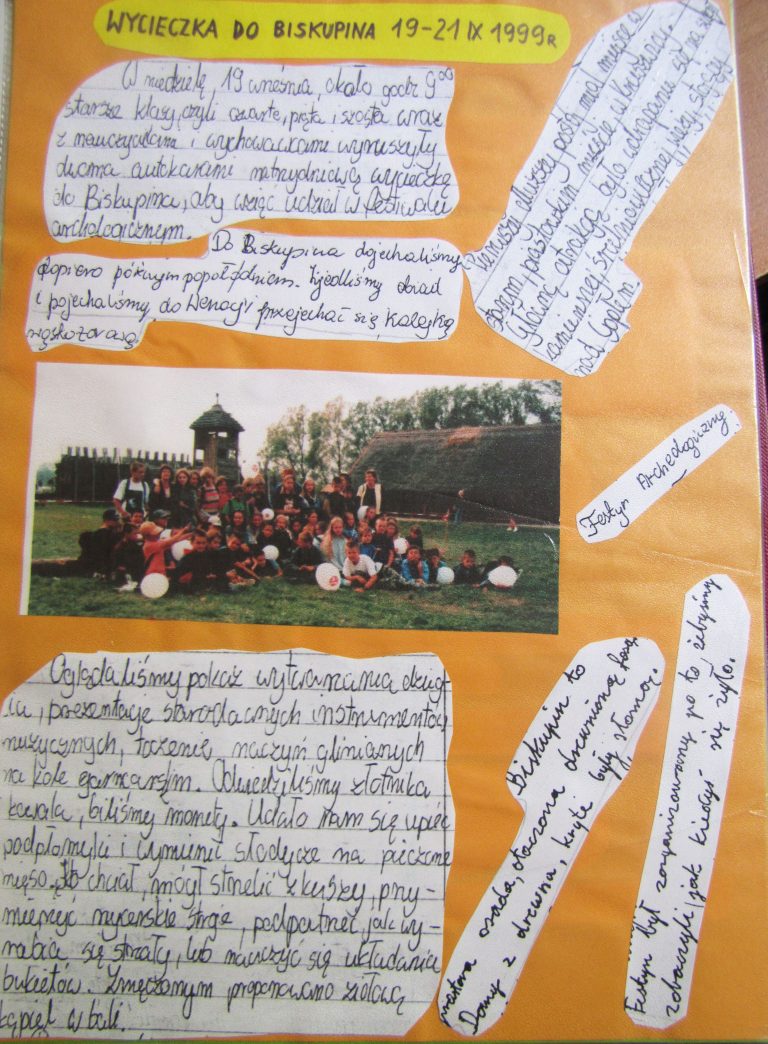 WYCIECZKA DO BISKUPINA 19-21 IX 1999R
W niedzielę, 19 września, około godz 9⁰⁰
starsze klasy, czyli czwarte, piąta i szósta wraz
z nauczycielami i wychowawcami wyruszyły
dwoma autokarami na trzydniową wycieczkę
do Biskupina, aby wziąć udział w festiwalu
archologicznym.
Pierwszy dłuższy postój miał miejsce w
starym, piastowskim mieście w Kruszwicy.
Główną atrakcją było wdrapanie się na szczyt
kamiennej średniowiecznej wieży, stojącej
nad Gopłem.
Do Biskupina dojechaliśmy
dopiero późnym popołudniem. Zjedliśmy obiad
i pojechaliśmy do Wenecji przejechać się kolejką
wąskotorową.
Festyn Archeologiczny
Oglądaliśmy pokaz wytwarzania dzieg-
ciu, prezentacje starodawnych instrumentów
muzycznych, toczenie naczyń glinianych
na kole garncarskim. Odwiedziliśmy złotnika
kowala, biliśmy monety. Udało nam się upiec
podpłomyki i wymienić słodycze na pieczone
mięso. Kto chciał, mógł strzelić z kuszy, przy-
mierzyć rycerskie stroje, podpatrzeć, jak wy-
rabia się strzały, lub nauczyć się układania
bukietów. Zmęczonym proponowano ziołową
kąpiel w balii.
Biskupin to
prastara osada, otoczona drewnianą fosą.
Domy z drewna, kryte były słomą.
Festyn był zorganizowany po to, żebyśmy
zobaczyli jak kiedyś się żyło.